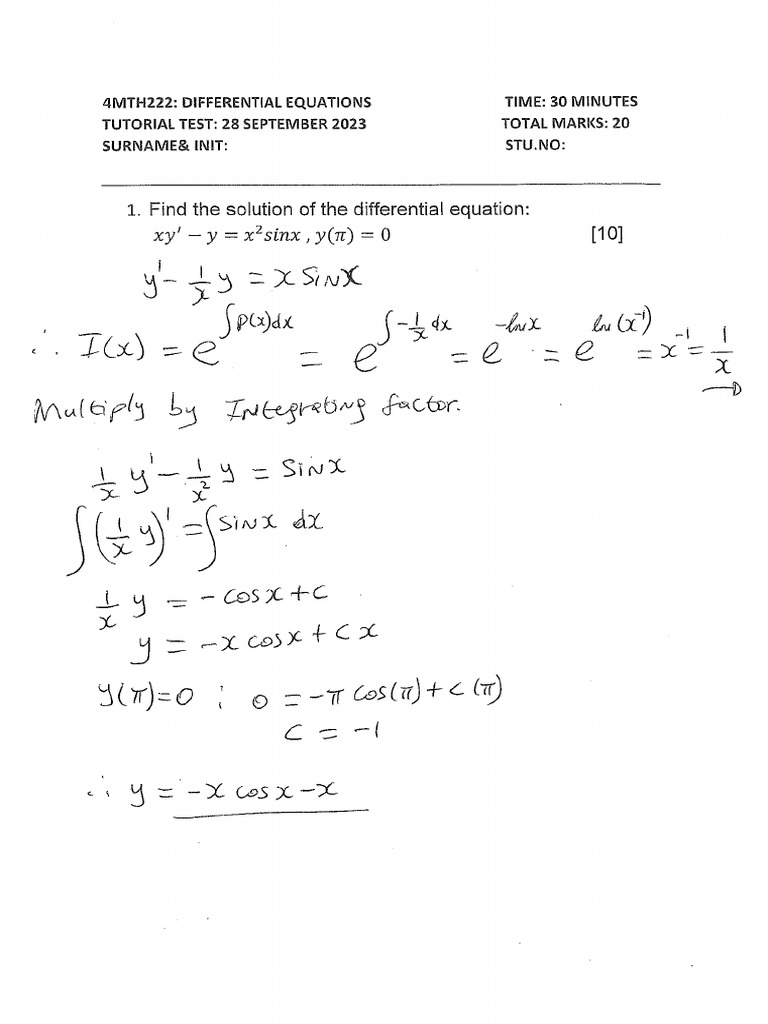 4MTH222: DIFFERENTIAL EQUATIONS TIME: 30 MINUTES
TUTORIAL TEST: 28 SEPTEMBER 2023 TOTAL MARKS: 20
SURNAME& INIT: STU.NO:
1. Find the solution of the differential equation:
xy′ − y = x²sinx , y(π) = 0 [10]
y' − 1/x y = x sinx
∴ I(x) = e^∫P(x)dx = e^∫−1/x dx = e^−lnx = e^ln(x⁻¹) = x⁻¹ = 1/x
Multiply by Integrating factor.
1/x y' − 1/x² y = sinx
∫(1/x y)' = ∫sinx dx
1/x y = −cosx + c
y = −x cosx + c x
y(π)=0 ; 0 = −π cos(π) + c(π)
c = −1
∴ y = −x cosx − x